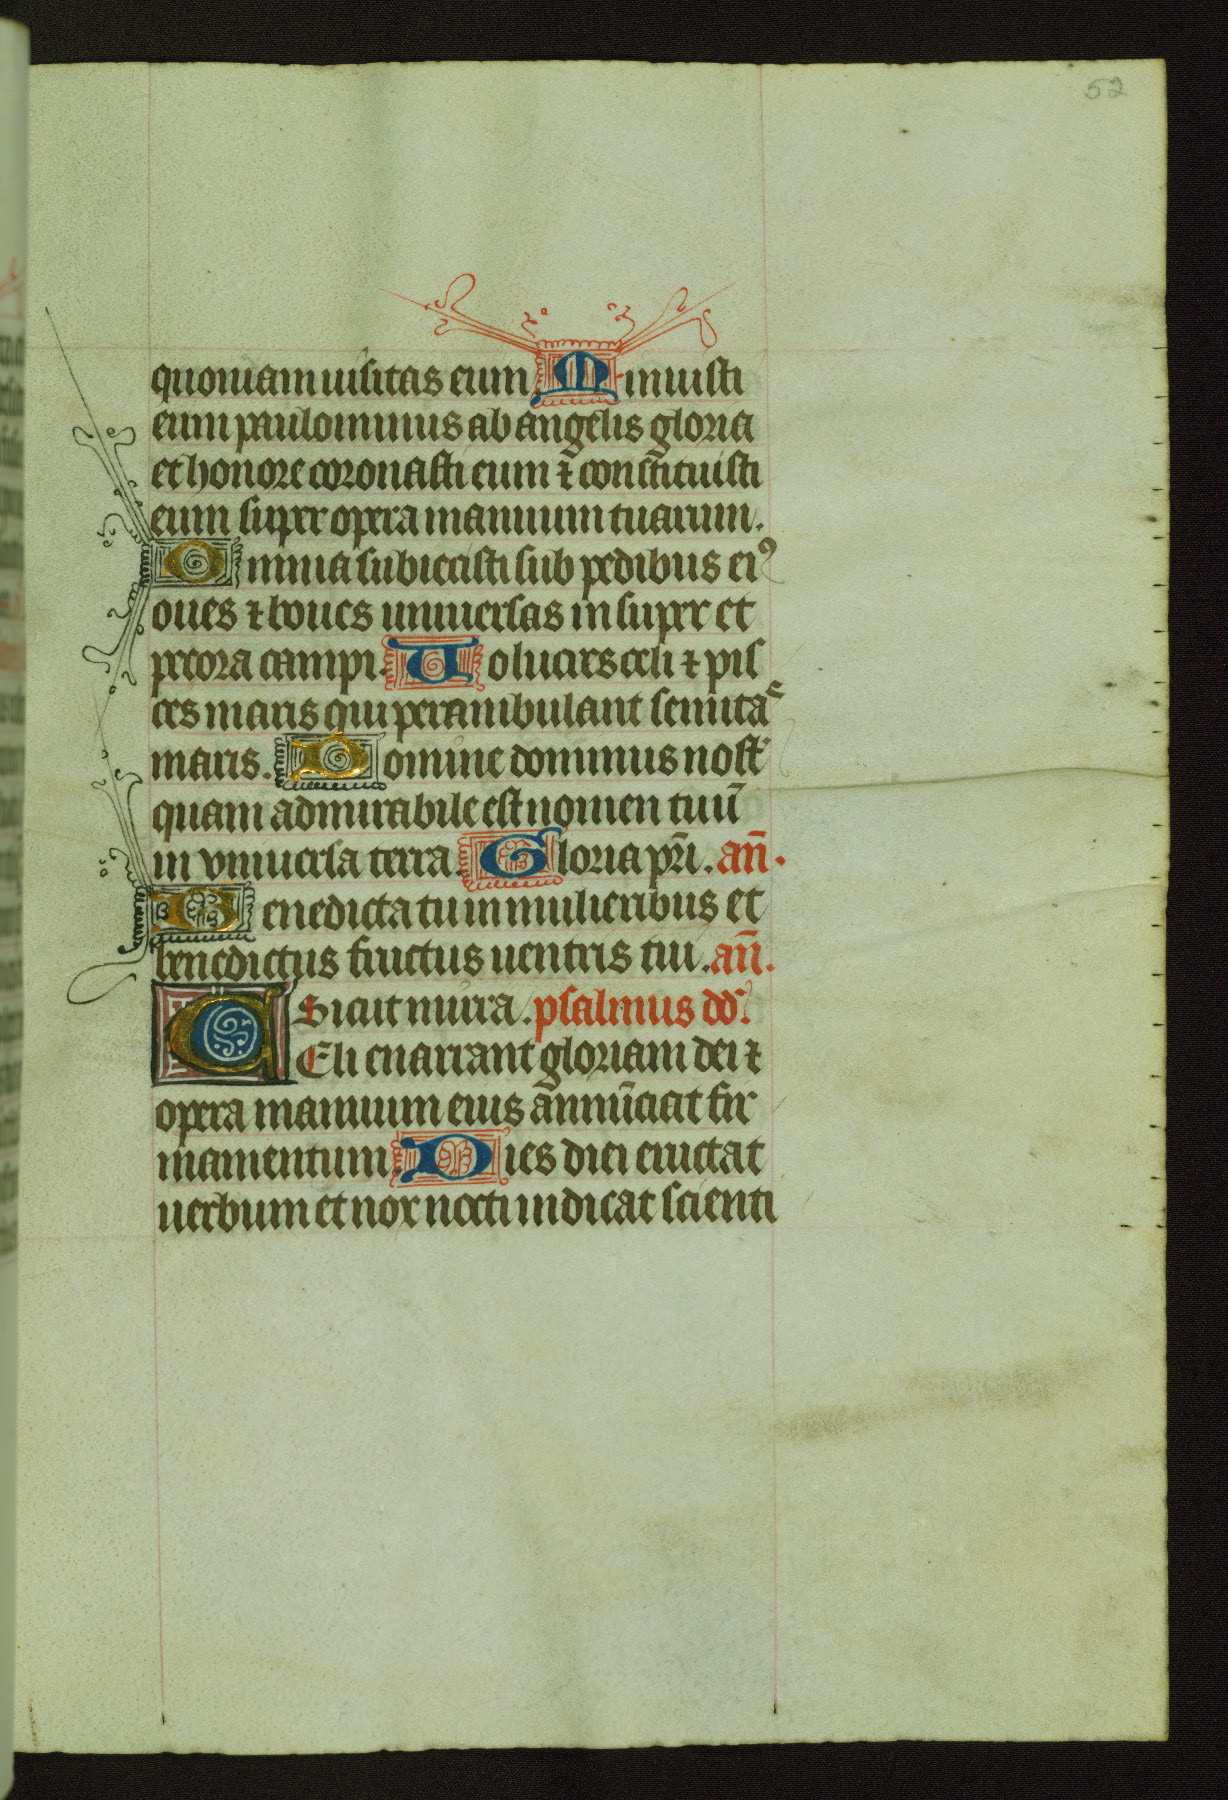 52
quoniam uisitas eum Minuisti
eum paulominus ab angelis gloria
et honore coronasti eum ⁊ constituisti
eum super opera manuum tuarum.
Omnia subiecisti sub pedibus eiꝰ
oues ⁊ boues uniuersas insuper et
pecora campi. Uolucres celi ⁊ pis
ces maris qui perambulant semitaˢ
maris. Domine dominus nost᷑
quam admirabile est nomen tuū
in vniuersa terra. Gloria pr̄i. an̄.
Benedicta tu in mulieribus et
benedictus fructus uentris tui. an̄.
Sicut mirra. psalmus dd᷑.
CEli enarrant gloriam dei ⁊
opera manuum eius annūciat fir
mamentum. Dies diei eructat
uerbum et nox nocti indicat scienti